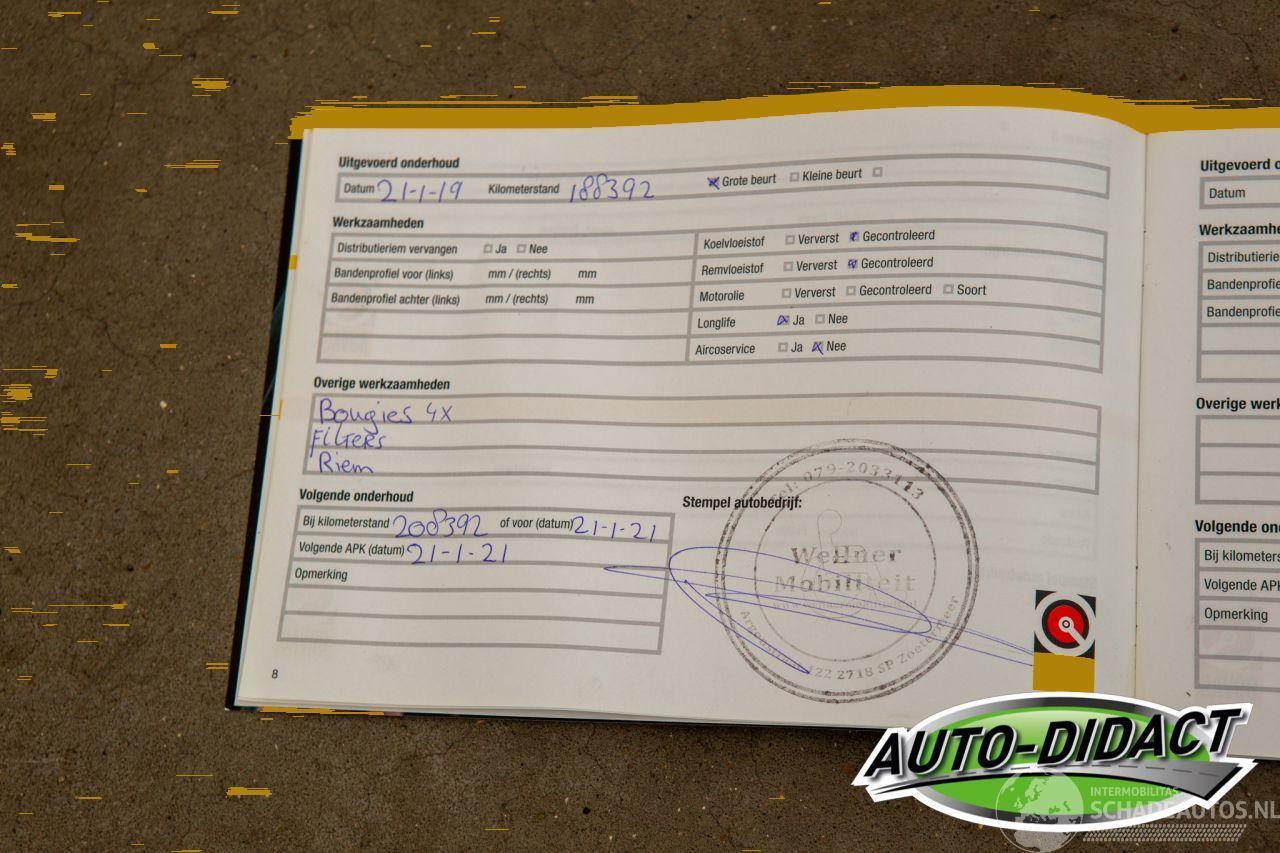 Uitgevoerd onderhoud
Datum 21-1-19 Kilometerstand 188392 Grote beurt Kleine beurt
Werkzaamheden
Distributieriem vervangen Ja Nee
Bandenprofiel voor (links) mm / (rechts) mm
Bandenprofiel achter (links) mm / (rechts) mm
Koelvloeistof Ververst Gecontroleerd
Remvloeistof Ververst Gecontroleerd
Motorolie Ververst Gecontroleerd Soort
Longlife Ja Nee
Aircoservice Ja Nee
Overige werkzaamheden
Bougies 4x
Filters
Riem
Volgende onderhoud
Bij kilometerstand 208392 of voor (datum) 21-1-21
Volgende APK (datum) 21-1-21
Opmerking
Stempel autobedrijf:
Tel: 079-2033113
Wellner
Mobiliteit
122 2718 SP Zoetermeer
8
Uitgevoerd
Datum
Distributierie
Volgende
Bij kilometers
Volgende
Opmerking
AUTO-DIDACT
INTERMOBILITAS
SCHADEAUTOS.NL